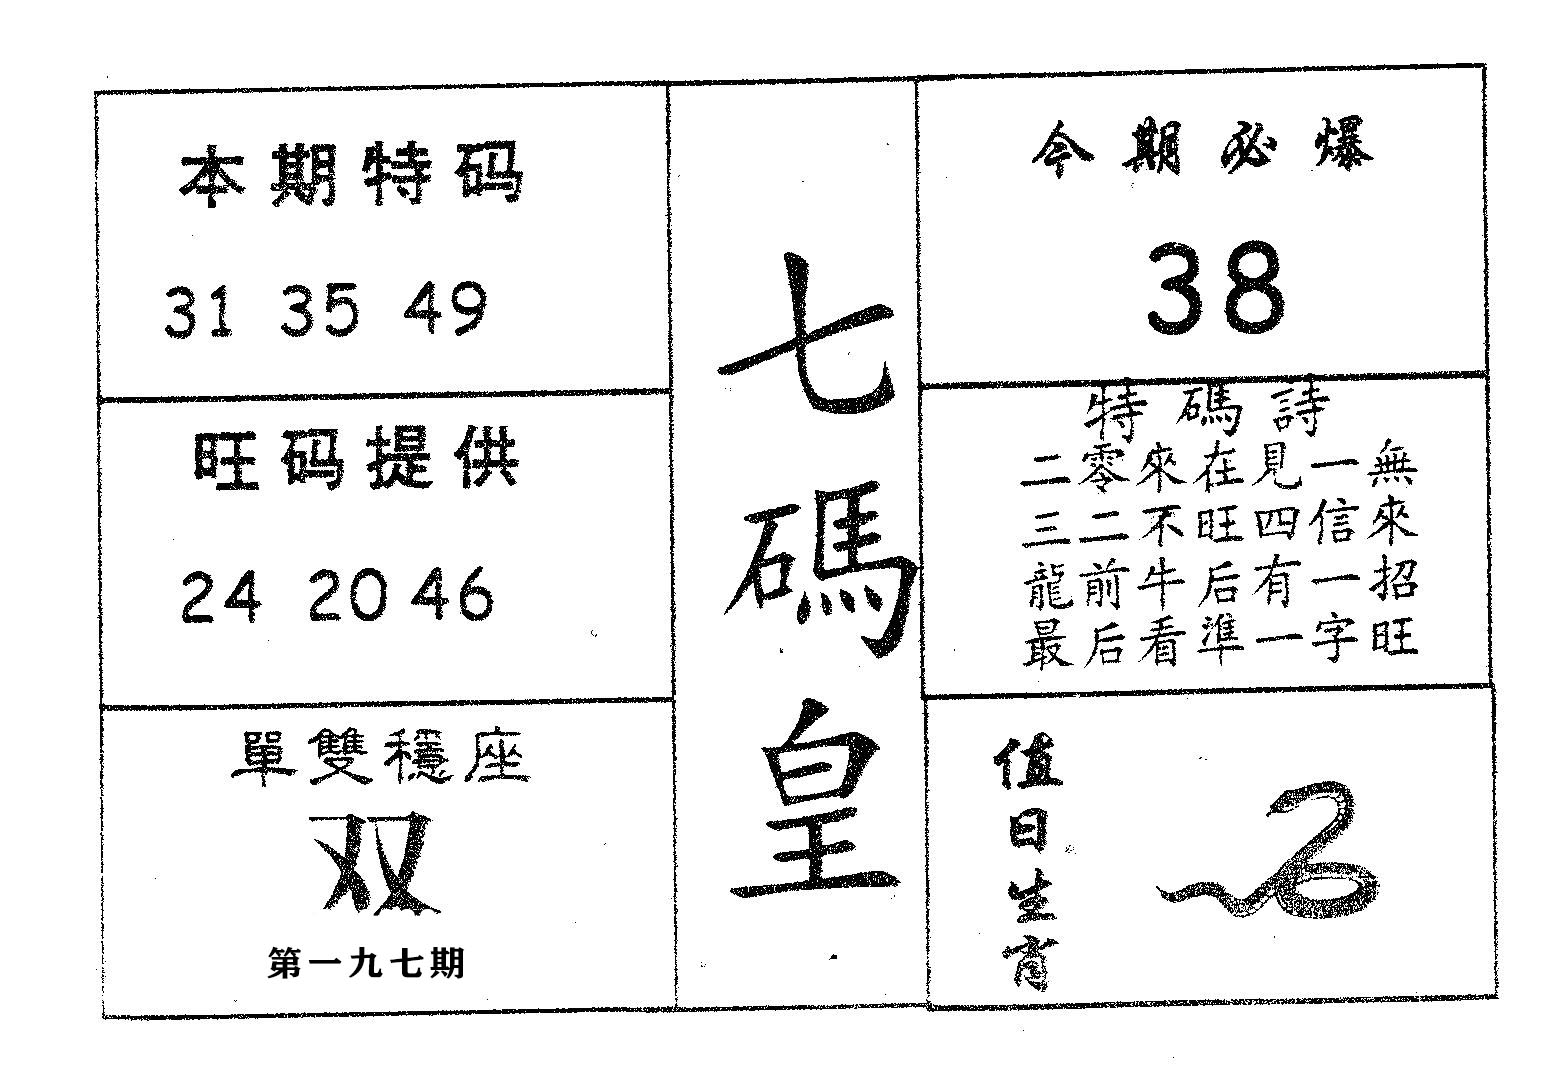 本期特码
31 35 49
旺码提供
24 20 46
單雙穩座
双
第一九七期
七碼皇
今期必爆
38
特碼詩
二零來在見一無
三二不旺四信來
龍前牛后有一招
最后看準一字旺
值日生肖